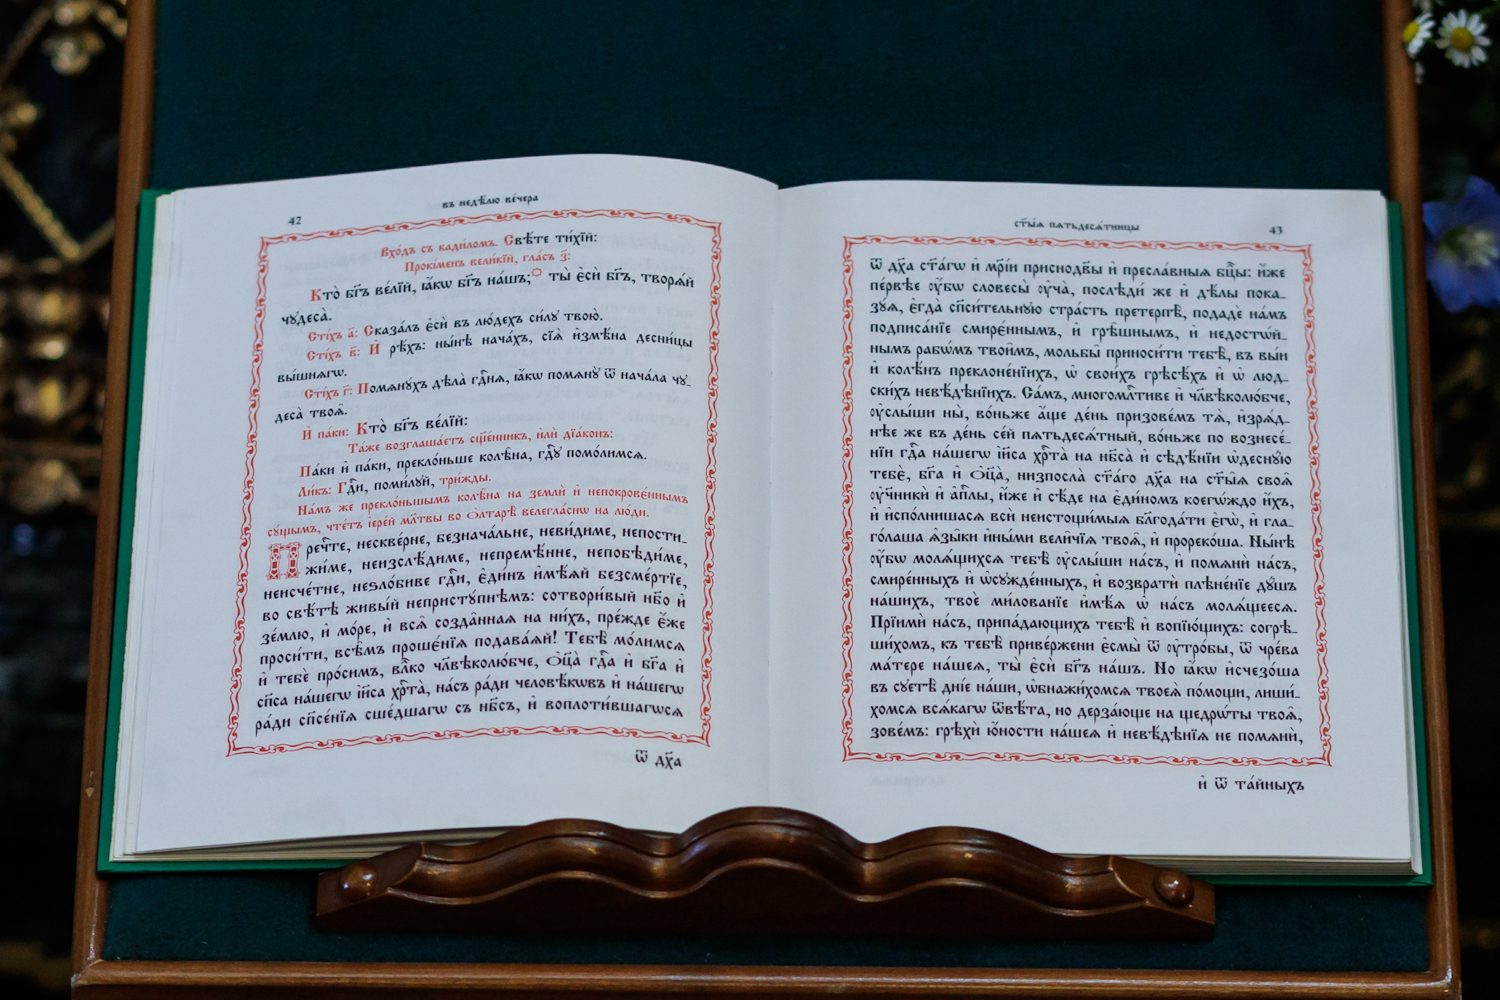 42
въ недѣ́лю ве́чера
Вхо́дъ съ кади́ломъ. Свѣ́те ти́хїй:
Прокі́менъ вели́кїй, гла́съ з҃:
Кто̀ бг҃ъ ве́лїй, ꙗ҆́кѡ бг҃ъ на́шъ; ты̀ є҆сѝ бг҃ъ, творѧ́й
чꙋдеса̀.
Сті́хъ а҃: Сказа́лъ є҆сѝ въ лю́дехъ си́лꙋ твою̀.
Сті́хъ в҃: И҆ рѣ́хъ: ны́нѣ нача́хъ, сїѧ̀ и҆змѣ́на десни́цы
вы́шнѧгѡ.
Сті́хъ г҃: Помѧнꙋ́хъ дѣла̀ гдⷭ҇нѧ, ꙗ҆́кѡ помѧнꙋ̀ ѿ нача́ла чꙋ-
деса̀ твоѧ̑.
И҆ па́ки: Кто̀ бг҃ъ ве́лїй:
Та́же возглаша́етъ сщ҃е́нникъ, и҆лѝ дїа́конъ:
Па́ки и҆ па́ки, прекло́ньше кѡлѣ́на, гдⷭ҇ꙋ помо́лимсѧ.
Ли́къ: Гдⷭ҇и, поми́лꙋй, три́жды.
На́мъ же прекло́ньшымъ кѡлѣ́на на землѝ и҆ непокрове́ннымъ
сꙋ́щымъ, чте́тъ і҆ере́й мл҃твы во ѻ҆лтарѣ̀ велегла́снѡ на лю́ди.
Пречⷭ҇те, нескве́рне, безнача́льне, неви́диме, непости-
жи́ме, неизслѣ́диме, непремѣ́нне, непобѣди́ме,
неисче́тне, неѕло́биве гдⷭ҇и, є҆ди́нъ и҆мѣ́ѧй безсме́ртїе,
во свѣ́тѣ живы́й непристꙋ́пнѣмъ: сотвори́вый нб҃о и҆
зе́млю, и҆ мо́ре, и҆ всѧ̑ созда̑ннаѧ на ни́хъ, пре́жде є҆́же
проси́ти, всѣ̑мъ проше́нїѧ подава́ѧй! Тебѣ̀ мо́лимсѧ
и҆ тебѐ про́симъ, влⷣко чл҃вѣколю́бче, ѻ҆ц҃а̀ гдⷭ҇а и҆ бг҃а и҆
сп҃са на́шегѡ і҆и҃са хрⷭ҇та̀, на́съ ра́ди человѣ́кѡвъ и҆ на́шегѡ
ра́ди сп҃се́нїѧ сше́дшагѡ съ нб҃съ, и҆ воплоти́вшагѡсѧ
ѿ дх҃а
ст҃ы́ѧ пѧтьдесѧ́тницы
43
ѿ дх҃а ст҃а́гѡ и҆ мр҃і́и приснодв҃ы и҆ пресла́вныѧ бцⷣы: и҆́же
пе́рвѣе ᲂу҆́бѡ словесы̀ ᲂу҆ча̀, послѣди́ же и҆ дѣ́лы пока-
зꙋ́ѧ, є҆гда̀ сп҃си́тельнꙋю стра́сть претерпѣ̀, подадѐ на́мъ
подписа́нїе смире́ннымъ, и҆ грѣ́шнымъ, и҆ недостѡ́й-
нымъ рабѡ́мъ твои̑мъ, мольбы̑ приноси́ти тебѣ̀, въ вы́и
и҆ кѡлѣ́нъ преклоне́нїихъ, ѡ҆ свои́хъ грѣсѣ́хъ и҆ ѡ҆ люд-
ски́хъ невѣ́дѣнїихъ. Са́мъ, многомлⷭ҇тиве и҆ чл҃вѣколю́бче,
ᲂу҆слы́ши ны̀, во́ньже а҆́ще де́нь призове́мъ тѧ̀, и҆зрѧ́д-
нѣе же въ де́нь се́й пѧтьдесѧ́тный, во́ньже по вознесе́-
нїи гдⷭ҇а на́шегѡ і҆и҃са хрⷭ҇та̀ на нб҃са̀ и҆ сѣдѣ́нїи ѡ҆деснꙋ́ю
тебє̀, бг҃а и҆ ѻ҆ц҃а̀, низпосла̀ ст҃а́го дх҃а на ст҃ы̑ѧ своѧ̑
ᲂу҆чн҃ки̑ и҆ а҆пⷭ҇лы, и҆́же и҆ сѣ́де на є҆ди́номъ коегѡ́ждо и҆́хъ,
и҆ и҆спо́лнишасѧ всѝ неистощи́мыѧ бл҃года́ти є҆гѡ̀, и҆ гла-
го́лаша ѧ҆зы̑ки и҆ны́ми вели̑чїѧ твоѧ̑, и҆ прореко́ша. Ны́нѣ
ᲂу҆́бѡ молѧ́щихсѧ тебѣ̀ ᲂу҆слы́ши на́съ, и҆ помѧнѝ на́съ,
смире́нныхъ и҆ ѡ҆сꙋжде́нныхъ, и҆ возвратѝ плѣне́нїе дꙋ́шъ
на́шихъ, твоѐ милова́нїе и҆мѣ́ѧ ѡ҆ на́съ молѧ́щеесѧ.
Прїимѝ на́съ, припа́дающихъ тебѣ̀ и҆ вопїю́щихъ: согрѣ-
ши́хомъ, къ тебѣ̀ приве́ржени є҆смы̀ ѿ ᲂу҆тро́бы, ѿ чре́ва
ма́тере на́шеѧ, ты̀ є҆сѝ бг҃ъ на́шъ. Но ꙗ҆́кѡ и҆зчезо́ша
въ сꙋетѣ̀ дні́е на́ши, ѡ҆бнажи́хомсѧ твоеѧ̀ по́мощи, лиши́-
хомсѧ всѧ́кагѡ ѿвѣ́та, но дерза́юще на щедрѡ́ты твоѧ̑,
зове́мъ: грѣхѝ ю҆́ности на́шеѧ и҆ невѣ́дѣнїѧ не помѧнѝ,
и҆ ѿ та́йныхъ